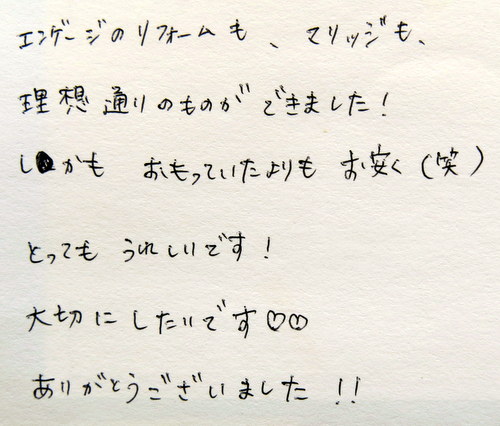 エンゲージのリフォームも、マリッジも、
理想通りのものができました！
しかも おもっていたよりも お安く(笑)
とっても うれしいです！
大切に したいです♡♡
ありがとうございました!!